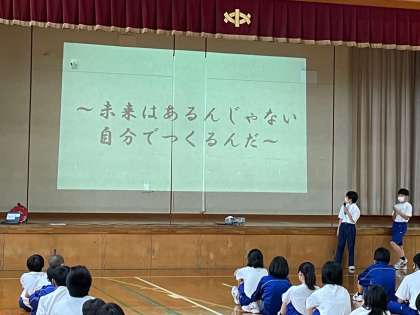 ～未来はあるんじゃない
自分でつくるんだ～